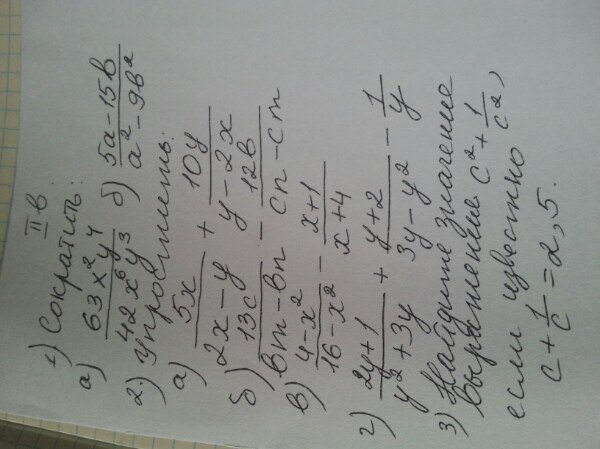 II в.
1) Сократить:
а) 63x²y⁴ / 42x⁶y³ б) 5a-15b / a²-9b²
2) Упростить:
а) 5x / 2x-y + 10y / y-2x
б) 13c / bm-bn - 12b / cn-cm
в) 4-x² / 16-x² - x+1 / x+4
г) 2y+1 / y²+3y + y+2 / 3y-y² - 1 / y
3) Найдите значение
выражение c²+ 1/c²,
если известно
c+ 1/c =2,5.